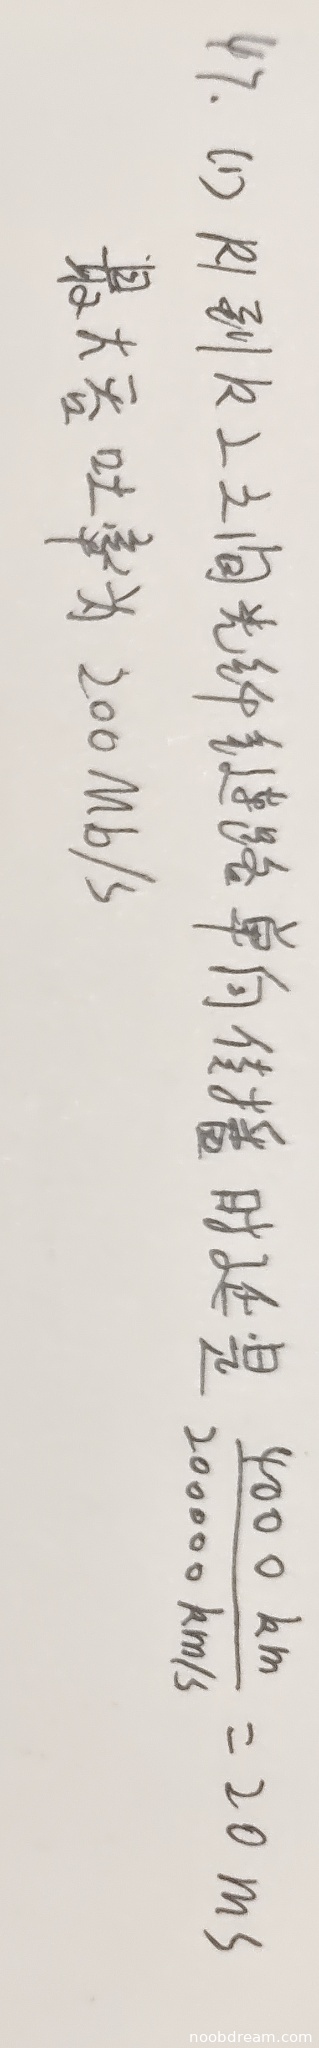 47. (1) R1到R2之间光纤链路单向传播时延是 4000 km / 200000 km/s = 20 ms
最大吞吐率为 200 Mb/s
noobdream.com